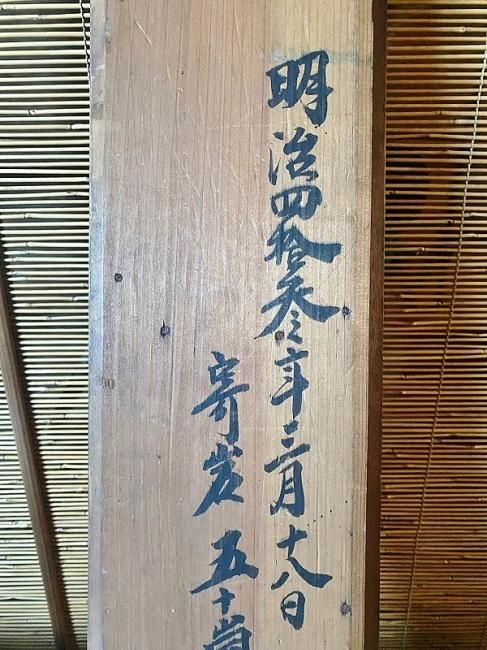 明治四拾叁年三月十八日
寄岩 五十